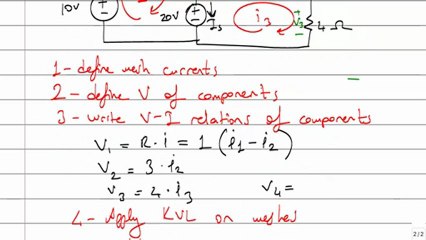 10V
20V
Is
i3
V3
4 Ω
1 - define mesh currents
2 - define V of components
3 - write V-I relations of components
V1 = R. i = 1 (i1 - i2)
V2 = 3. i2
V3 = 4. i3 V4 =
4 - Apply KVL on meshes
2/2